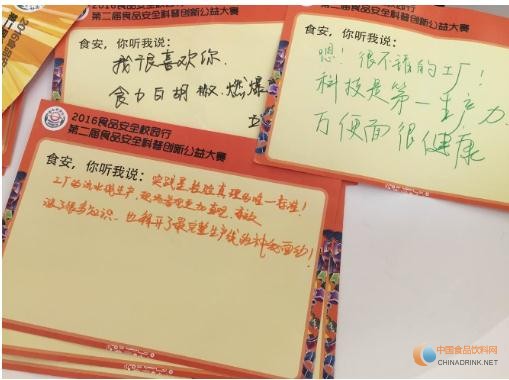 2016食品安
2016食品安全校园行
第二届食品安全科普创新公益大赛
食安，你听我说：
我很喜欢你.
食力白胡椒.燃爆
食安，你听我说：
嗯！很不错的工厂！
科技是第一生产力
方便面很健康
2016食品安全校园行
第二届食品安全科普创新公益大赛
食安，你听我说：
实践是检验真理的唯一标准！
工厂的流水线生产，
没了很多知识. 也释开了最完整生产线的神秘面纱！
中国食品饮料网
CHINADRINK.NET